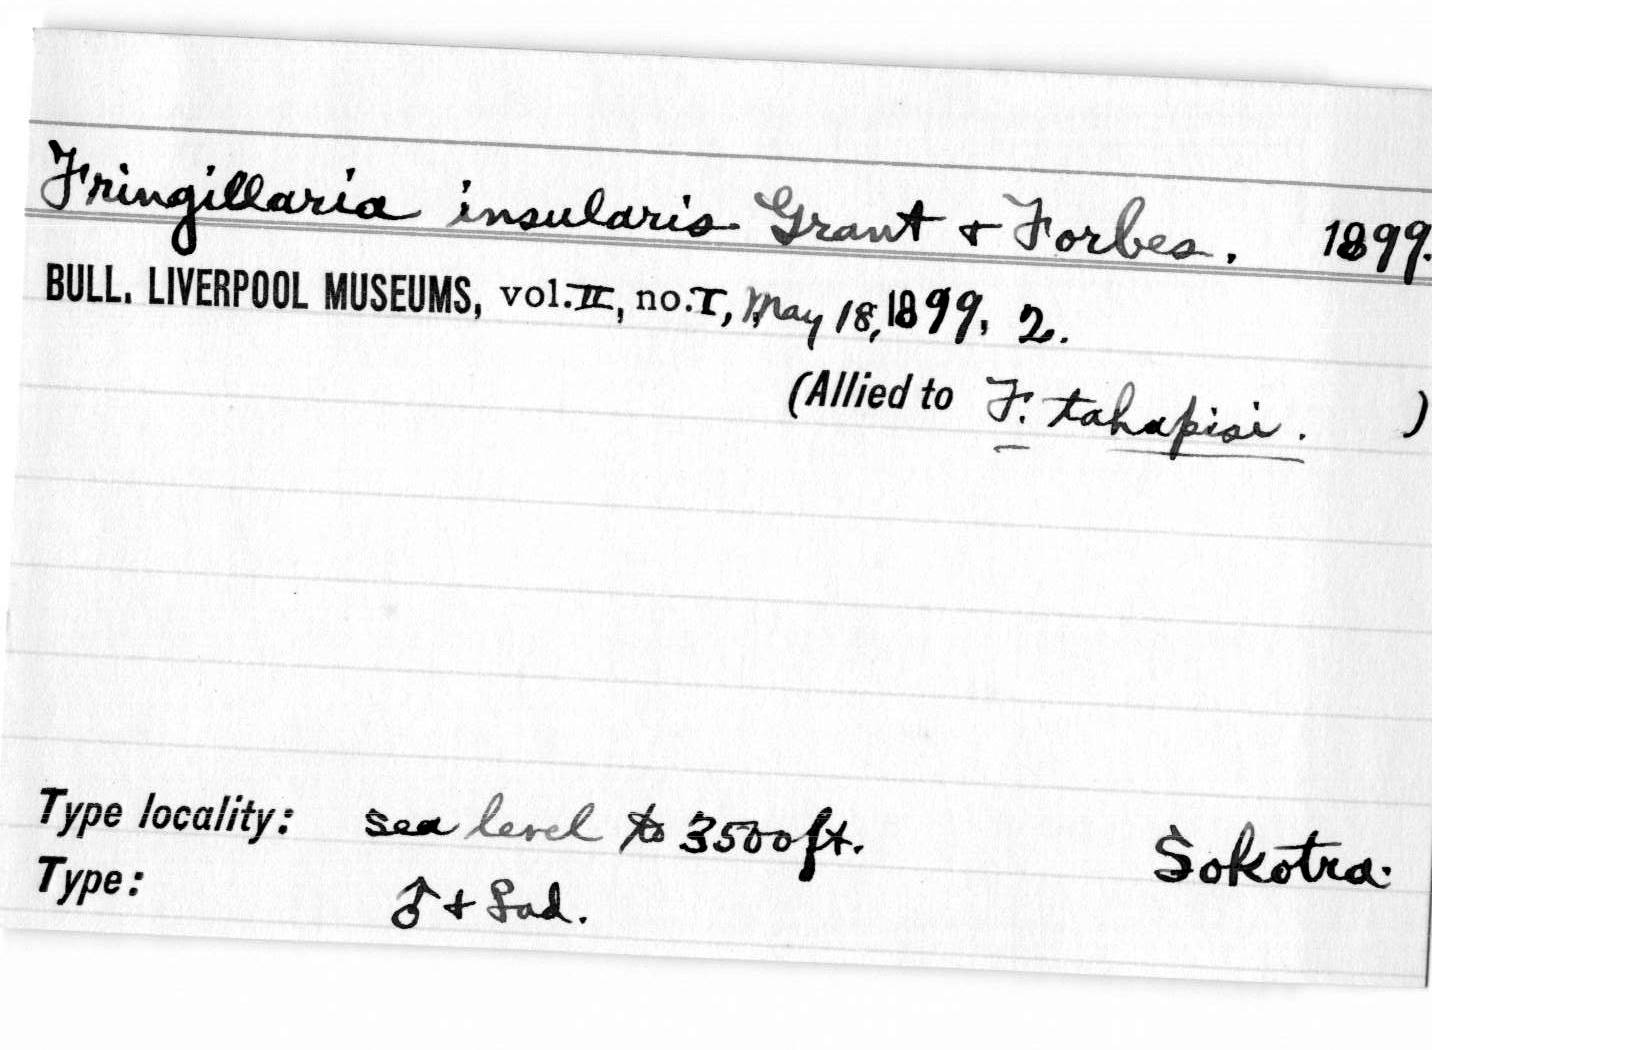 Fringillaria insularis Grant + Forbes. 1899.
BULL. LIVERPOOL MUSEUMS, vol. II, no. I, May 18, 1899, 2.
(Allied to F. tahapisi. )
Type locality: sea level to 3500 ft. Sokotra.
Type: ♂ + ♀ ad.